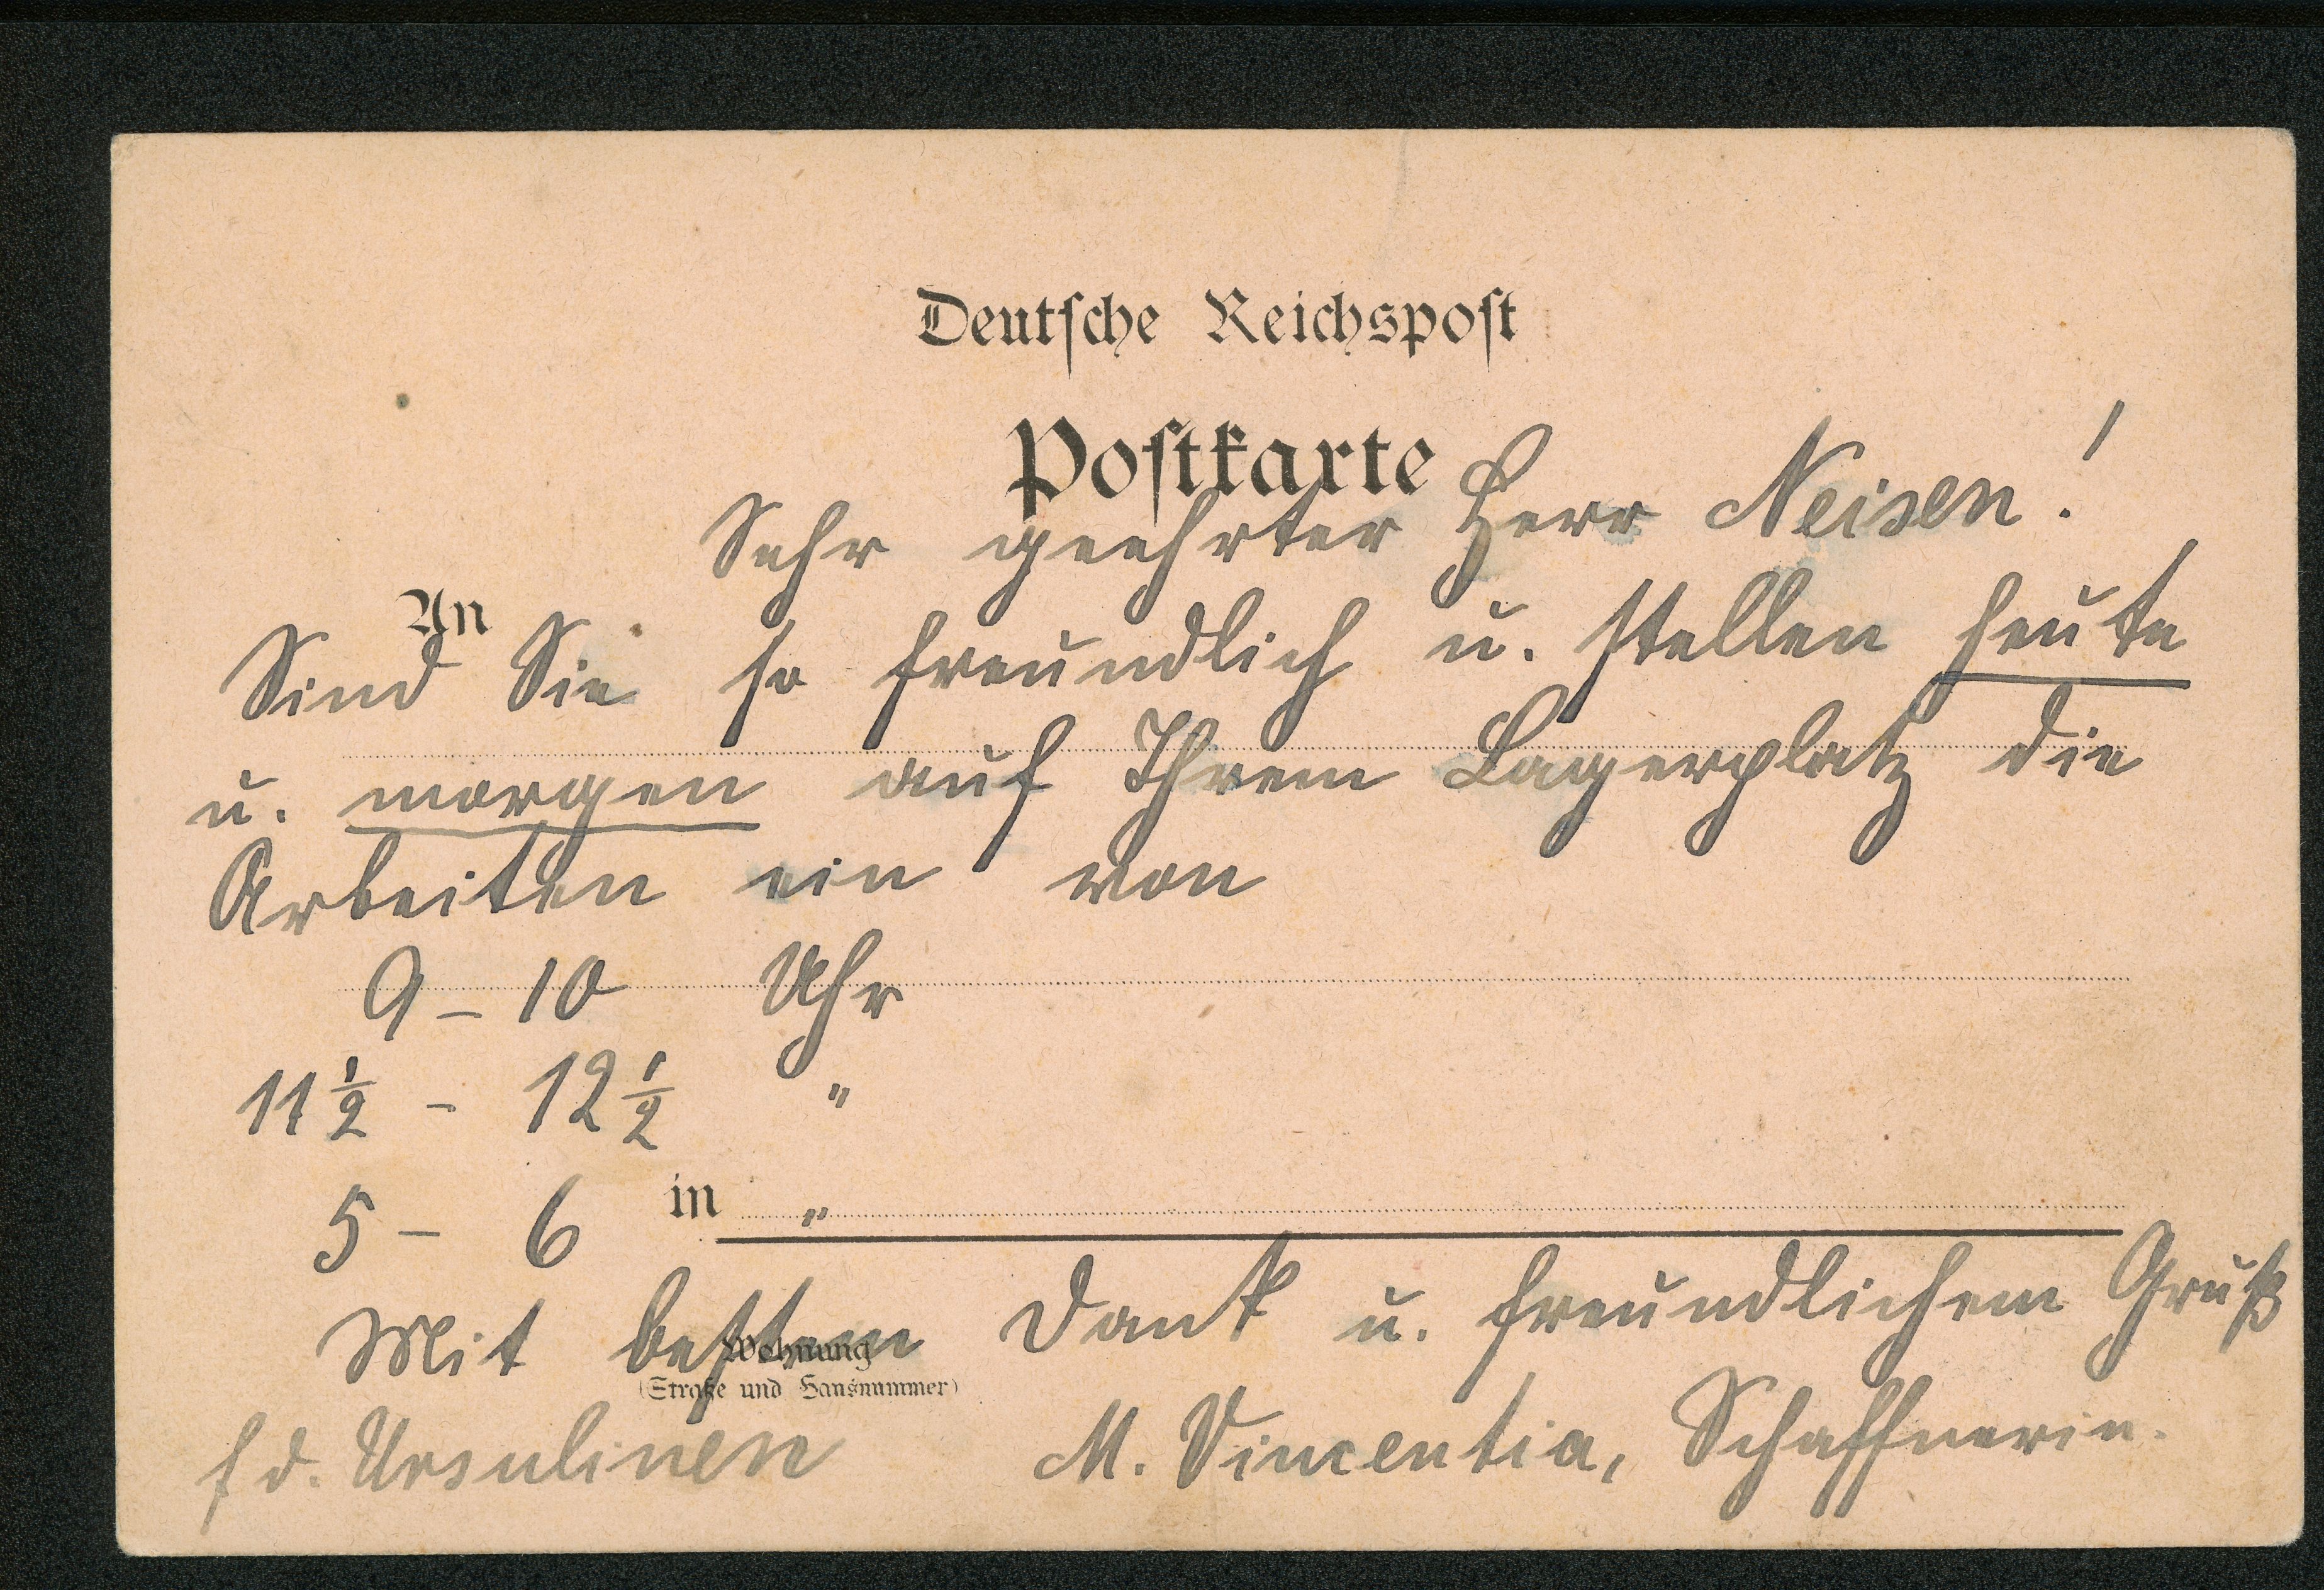 Deutsche Reichspost
Postkarte
Sehr geehrter Herr Neisen!
An
Sind Sie so freundlich u. stellen heute
u. morgen auf Ihrem Lagerplatz die
Arbeiten ein von
9 – 10 Uhr
11 1/2 – 12 1/2 "
5 – 6 "
in
Mit bestem Dank u. freundlichem Gruß
Wohnung
(Straße und Hausnummer)
f d. Ursulinen M. Vincentia, Schaffnerin.